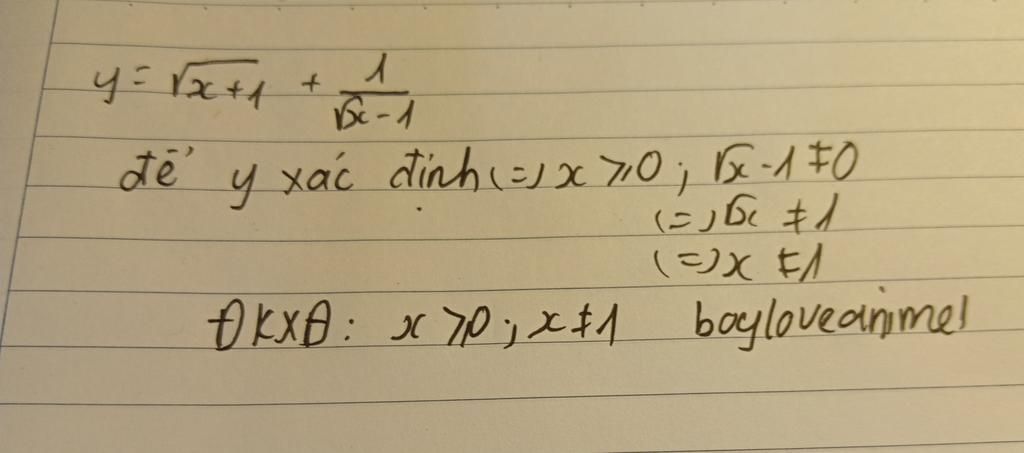 y = √(x+1) + 1/(√x - 1)
để y xác định (=) x ≥ 0 ; √x - 1 ≠ 0
(=) √x ≠ 1
(=) x ≠ 1
ĐKXĐ : x ≥ 0 ; x ≠ 1 boyloveanime!